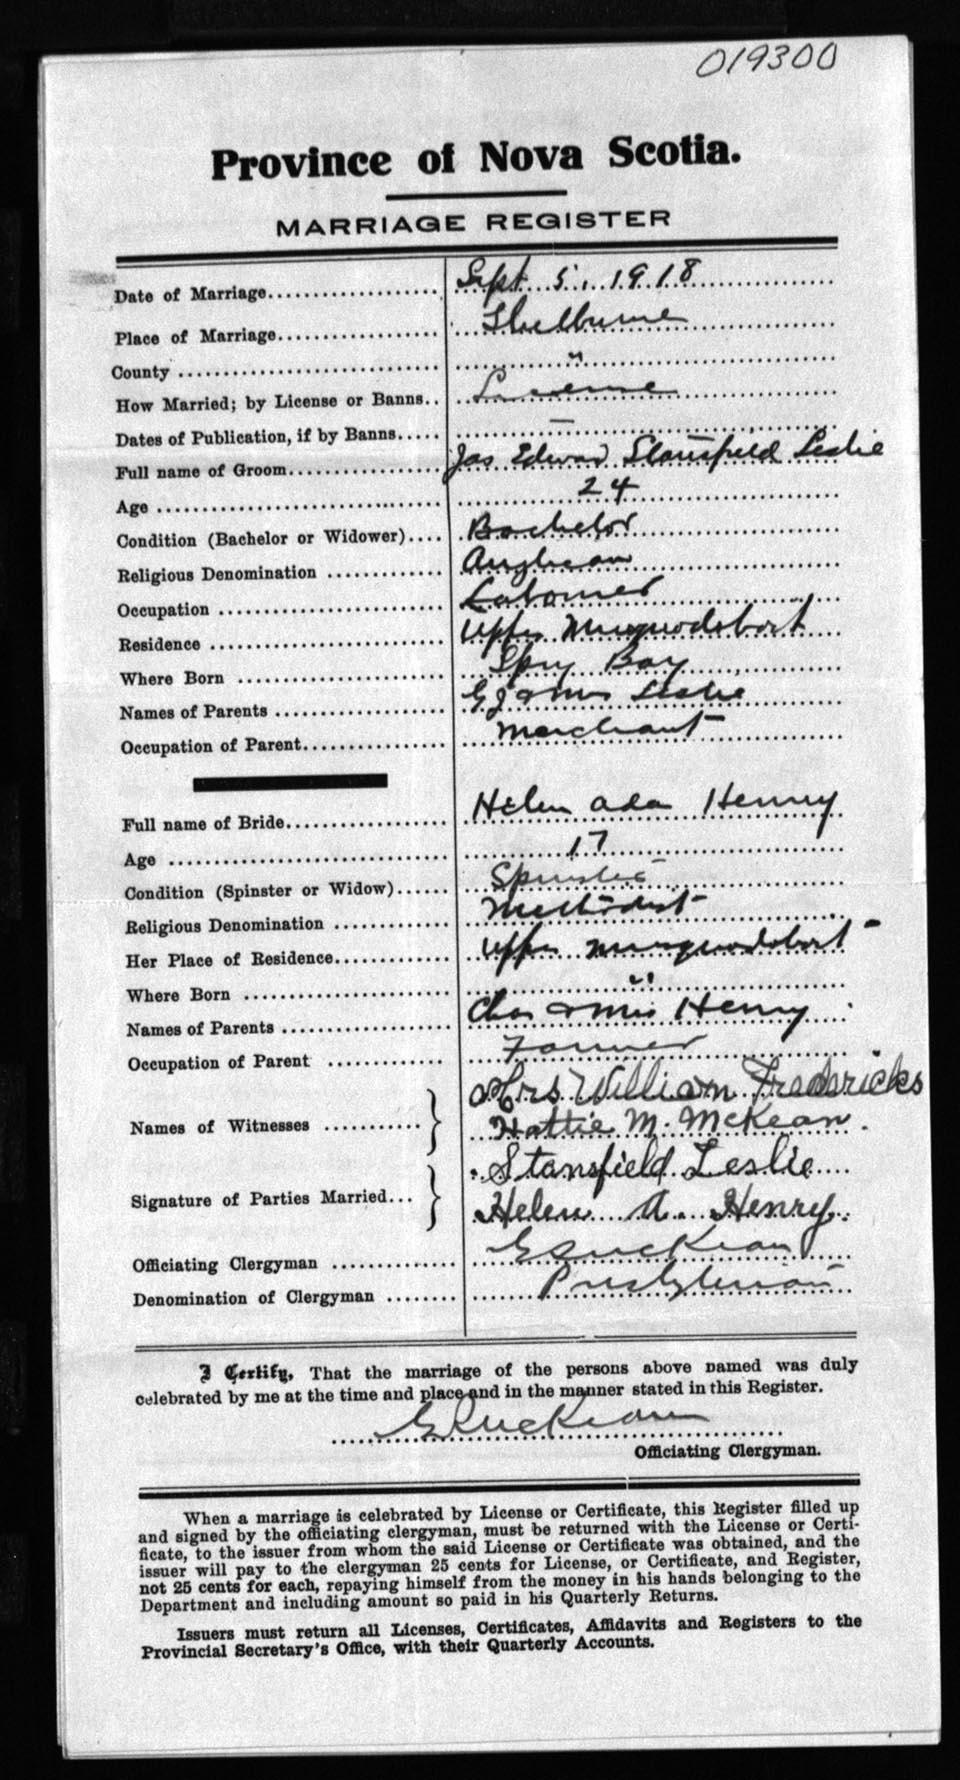 019300
Province of Nova Scotia.
MARRIAGE REGISTER
Date of Marriage Sept 5, 1918
Place of Marriage Shelburne
County "
How Married; by License or Banns License
Dates of Publication, if by Banns —
Full name of Groom Jas Edward Stansfield Leslie
Age 24
Condition (Bachelor or Widower) Bachelor
Religious Denomination Anglican
Occupation Labourer
Residence Upper Musquodoboit
Where Born Spry Bay
Names of Parents G J & Mrs Leslie
Occupation of Parent Merchant
Full name of Bride Helen Ada Henry
Age 17
Condition (Spinster or Widow) Spinster
Religious Denomination Methodist
Her Place of Residence Upper Musquodoboit
Where Born "
Names of Parents Chas & Mrs Henry
Occupation of Parent Farmer
Names of Witnesses Mrs William Fredericks
Hattie M. McKean.
Signature of Parties Married Stansfield Leslie
Helen A. Henry.
Officiating Clergyman McKean
Denomination of Clergyman Presbyterian
I Certify, That the marriage of the persons above named was duly
celebrated by me at the time and place and in the manner stated in this Register.
McKean
Officiating Clergyman.
When a marriage is celebrated by License or Certificate, this Register filled up
and signed by the officiating clergyman, must be returned with the License or Certi-
ficate, to the issuer from whom the said License or Certificate was obtained, and the
issuer will pay to the clergyman 25 cents for License, or Certificate, and Register,
not 25 cents for each, repaying himself from the money in his hands belonging to the
Department and including amount so paid in his Quarterly Returns.
Issuers must return all Licenses, Certificates, Affidavits and Registers to the
Provincial Secretary's Office, with their Quarterly Accounts.